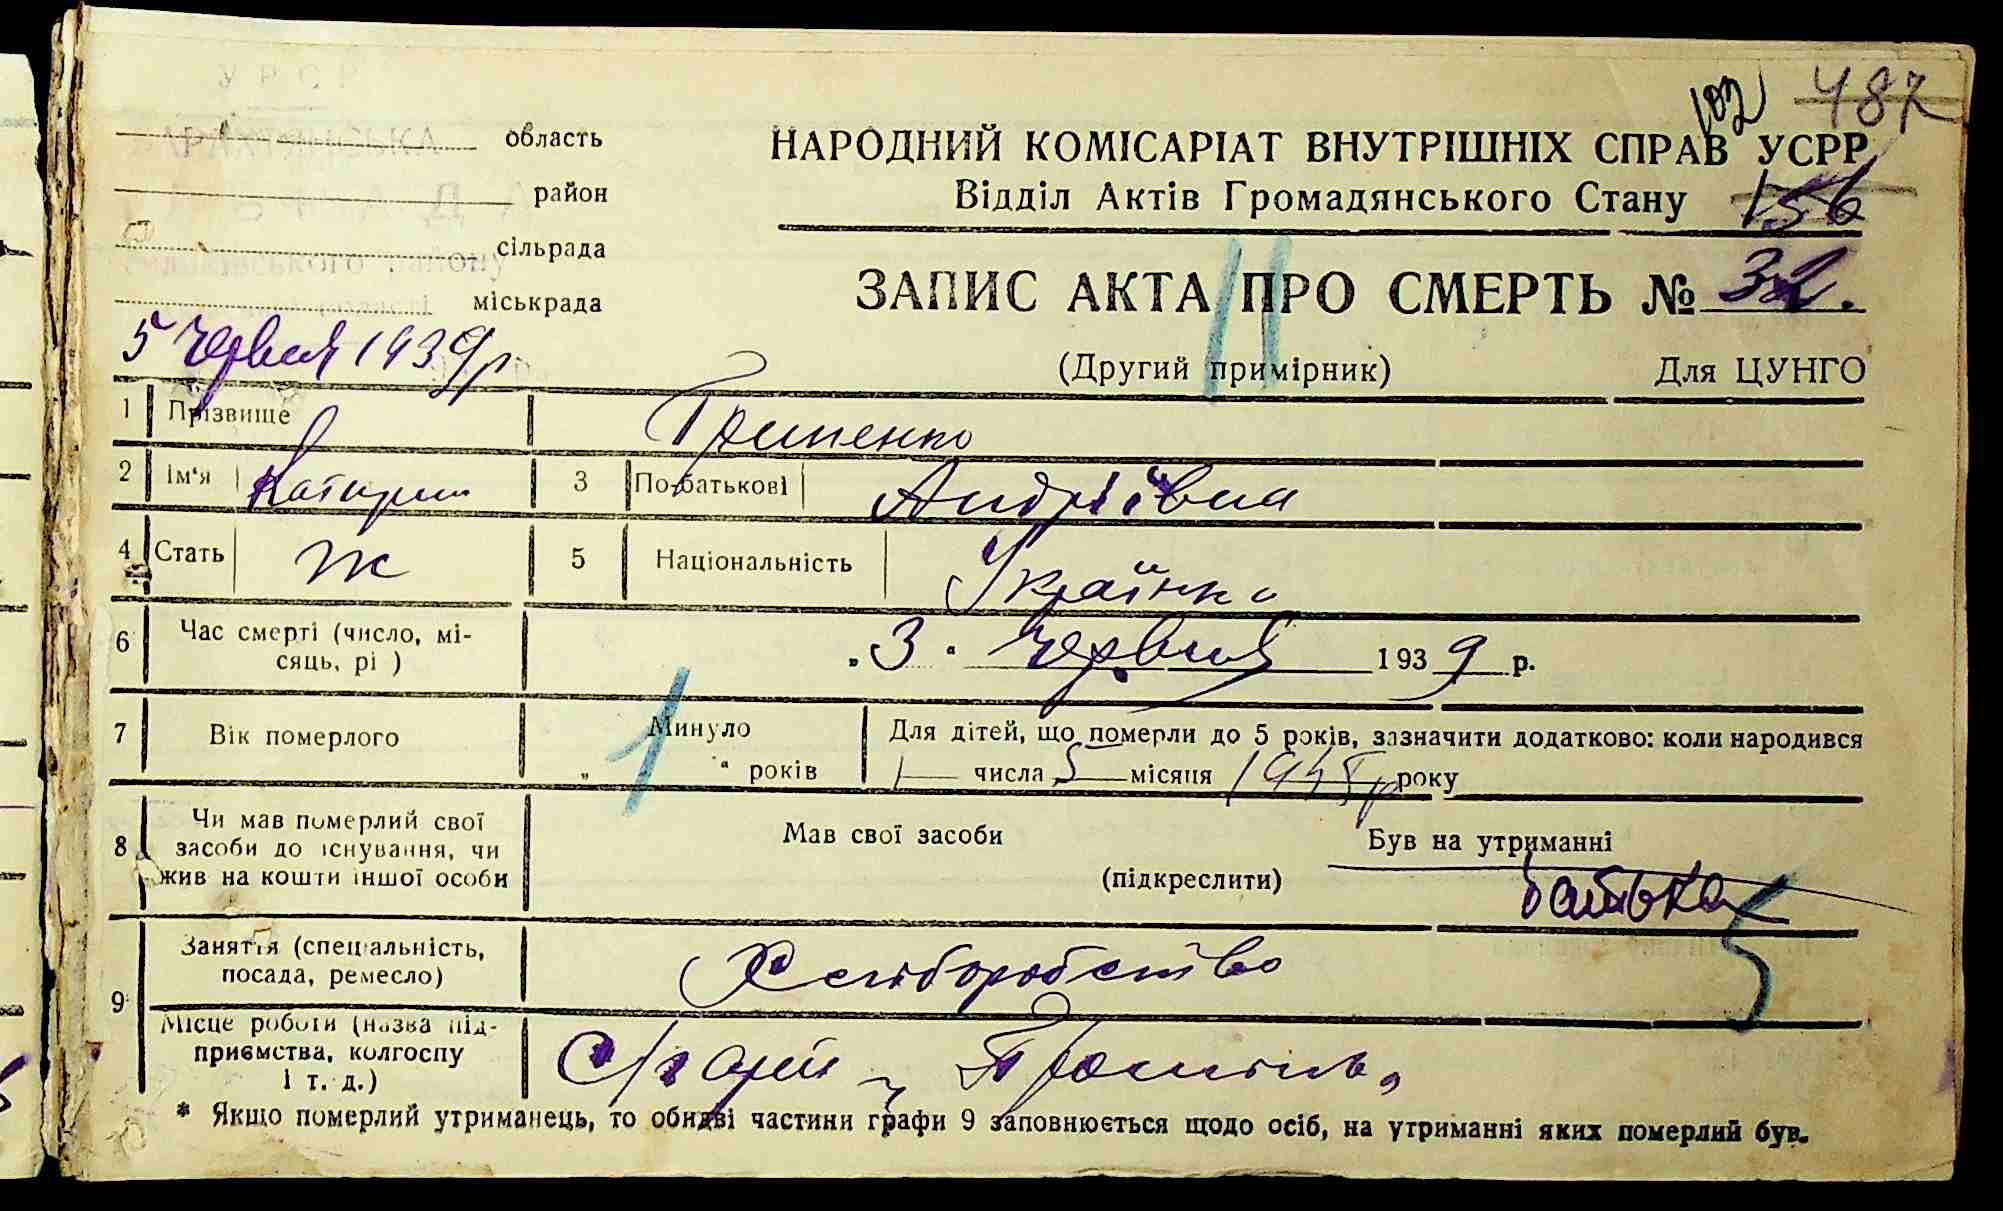 УРСР
БАРАХТЯНСЬКА
область
район
сільрада
міськрада
102 487
НАРОДНИЙ КОМІСАРІАТ ВНУТРІШНІХ СПРАВ УСРР
Відділ Актів Громадянського Стану 156
ЗАПИС АКТА ПРО СМЕРТЬ № 32.
(Другий примірник) Для ЦУНГО
5 червня 1939 р
1 Прізвище Гриценко
2 Ім'я Катерина 3 По-батькові Андріївна
4 Стать ж 5 Національність Українка
6 Час смерті (число, мі-
сяць, рі ) „3“ червня 1939 р.
7 Вік померлого Минуло 1 „ “ років
Для дітей, що померли до 5 років, зазначити додатково: коли народився
1 числа 5 місяця року
8 Чи мав померлий свої
засоби до існування, чи
жив на кошти іншої особи
Мав свої засоби Був на утриманні
(підкреслити) батька
9 Заняття (спеціальність,
посада, ремесло) Хліборобство
Місце роботи (назва під-
приємства, колгоспу
і т. д.) С/г артіль
* Якщо померлий утриманець, то обидві частини графи 9 заповнюється щодо осіб, на утриманні яких померлий був.